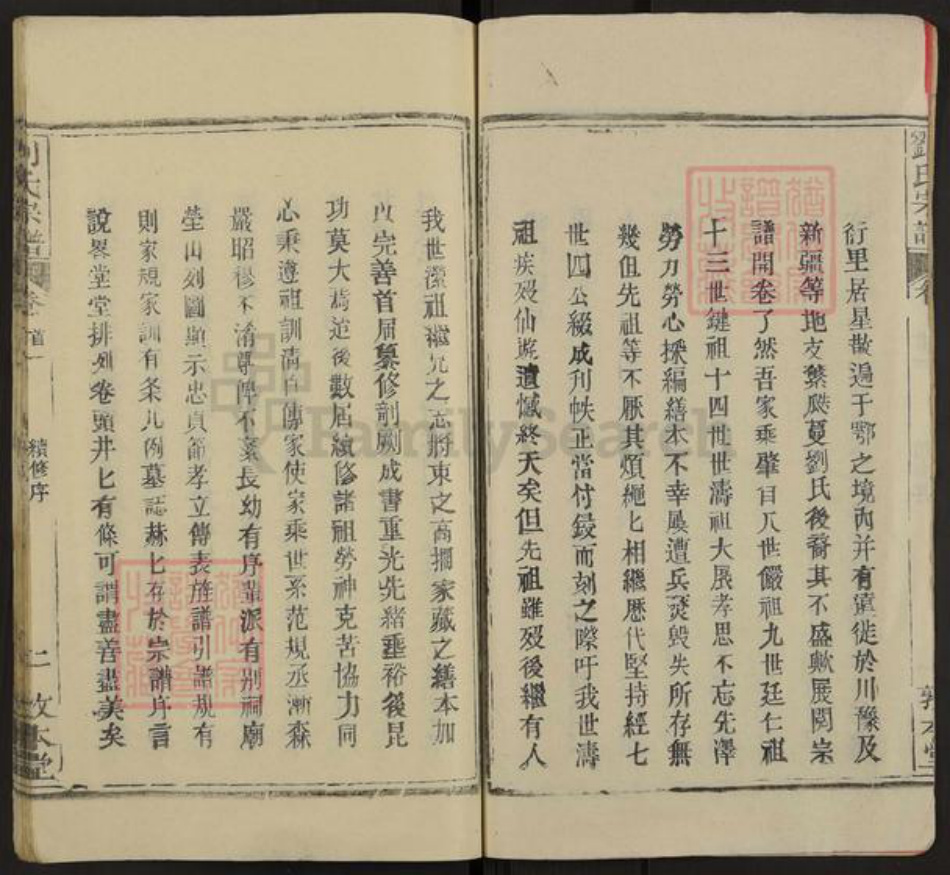 劉氏宗譜
衍里居星散遍于鄂之境內并有遷徙於川豫及
新疆等地支繁瓞蔓劉氏後裔其不盛歟展閱宗
譜開卷了然吾家乘肇自八世儼祖九世廷仁祖
十三世鍵祖十四世世濤祖大展孝思不忘先澤
勞力勞心採編繕本不幸屡遭兵燹毀失所存無
幾但先祖等不厭其煩繩匕相繼歴代堅持經七
世四公綴成刋帙正當付鋟而刻之際吁我世濤
祖疾歿仙遊遺憾終天矣但先祖雖歿後繼有人
敦本堂
我世瀠祖繼兄之志將束之高擱家藏之繕本加
以完善首屆纂修剞劂成書重光先緒垂裕後昆
功莫大焉迨後數屆續修諸祖勞神克苦協力同
心秉遵祖訓清白傳家使家乘世系范規丞漸森
嚴昭穆不淆尊卑不紊長幼有序輩派有别祠廟
塋山列圖顯示忠貞節孝立傳表旌譜引譜規有
則家規家訓有条凡例墓誌赫匕存於宗譜序言
說畧堂堂排列卷頭井匕有條可謂盡善盡美矣
劉氏宗譜
卷首一
續修序
二
敦本堂
FamilySearch